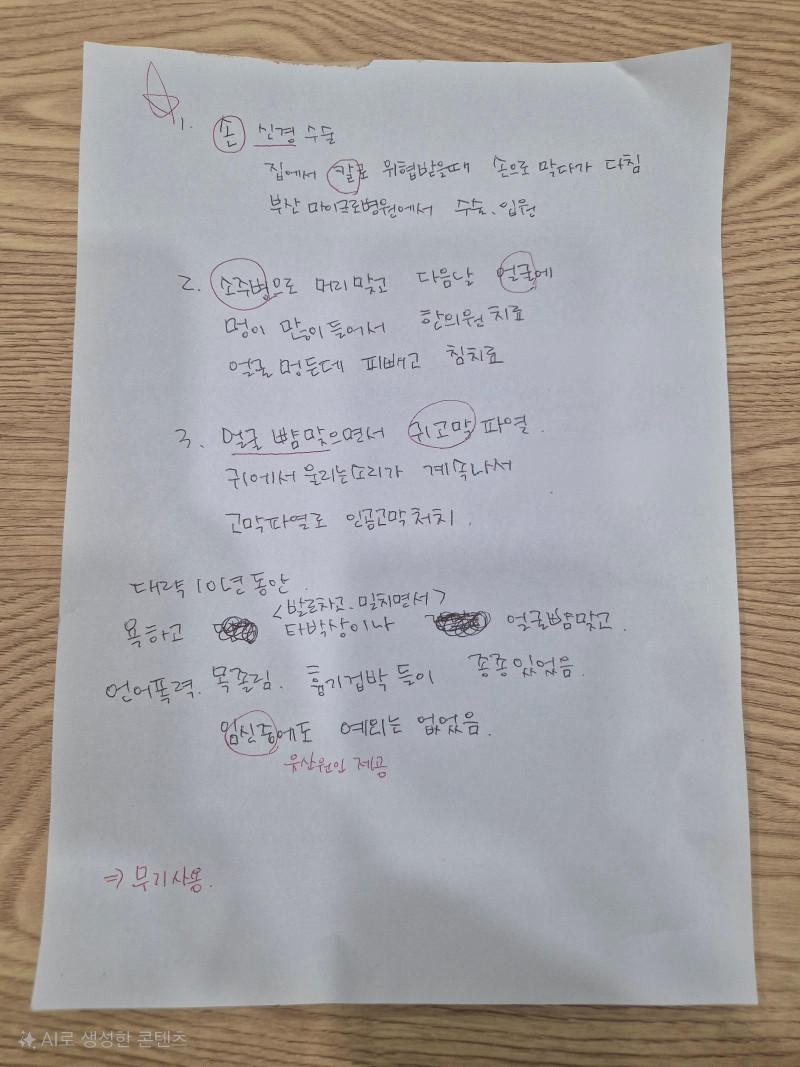 1. 손 신경 수술
집에서 칼로 위협받을때 손으로 막다가 다침
부산 마이크로병원에서 수술, 입원
2. 소주병으로 머리 맞고 다음날 얼굴에
멍이 많이 들어서 한의원 치료
얼굴 멍든데 피빼고 침치료
3. 얼굴 뺨 맞으면서 귀 고막 파열.
귀에서 울리는소리가 계속나서
고막파열로 인공고막 처치.
대략 10년 동안.
<발로차고, 밀치면서>
욕하고 타박상이나 얼굴뺨맞고.
언어폭력. 목졸림. 흉기겁박 들이 종종있었음.
임신중에도 예외는 없었음.
유산원인 제공
⇒ 무기사용.
AI로 생성한 콘텐츠